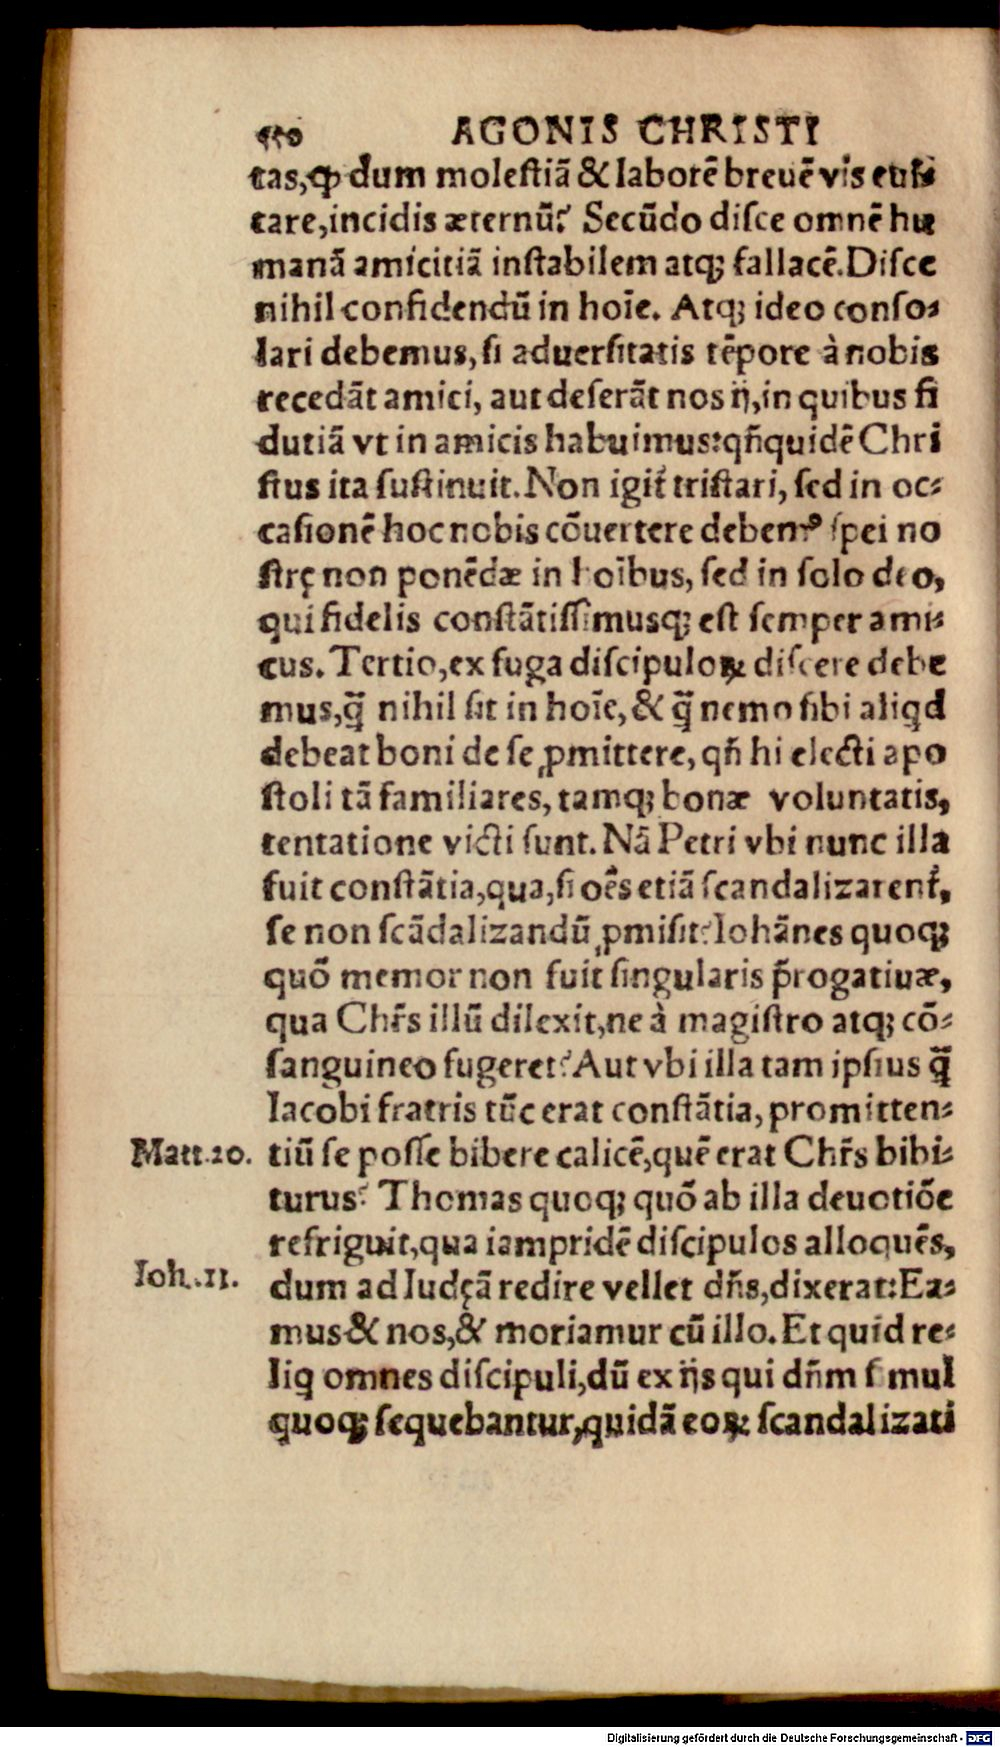 550 AGONIS CHRISTI
tas, ꝙ dum molestiã & laborẽ breuẽ vis eui⸗
tare, incidis æternũ? Secũdo disce omnẽ hu
manã amicitiã instabilem atq; fallacẽ. Disce
nihil confidendũ in hoĩe. Atq; ideo conso⸗
lari debemus, si aduersitatis tẽpore à nobis
recedãt amici, aut deserãt nos ij, in quibus fi
dutiã vt in amicis habuimus: qñquidẽ Chri
stus ita sustinuit. Non igit᷑ tristari, sed in oc⸗
casionẽ hoc nobis cõuertere debemꝰ spei no
strę non ponẽdæ in hoĩbus, sed in solo deo,
qui fidelis constãtissimusq; est semper ami⸗
cus. Tertio, ex fuga discipuloꝝ discere debe
mus, q̃ nihil sit in hoĩe, & q̃ nemo sibi aliqd
debeat boni de se ꝓmittere, qñ hi electi apo
stoli tã familiares, tamq; bonæ voluntatis,
tentatione victi sunt. Nã Petri vbi nunc illa
fuit constãtia, qua, si oẽs etiã scandalizarent᷑,
se non scãdalizandũ ꝓmisit? Iohãnes quoq;
quõ memor non fuit singularis p̃rogatiuæ,
qua Chr̃s illũ dilexit, ne à magistro atq; cõ⸗
sanguineo fugeret? Aut vbi illa tam ipsius q̃
Iacobi fratris tũc erat constãtia, promitten⸗
Matt. 20. tiũ se posse bibere calicẽ, quẽ erat Chr̃s bibi⸗
turus? Thomas quoq; quõ ab illa deuotiõe
refriguit, qua iampridẽ discipulos alloquẽs,
Ioh. 11. dum ad Iudęã redire vellet dñs, dixerat: Ea⸗
mus & nos, & moriamur cũ illo. Et quid re⸗
liq omnes discipuli, dũ ex ijs qui dñm simul
quoq; sequebantur, quidã eoꝝ scandalizati
Digitalisierung gefördert durch die Deutsche Forschungsgemeinschaft - DFG